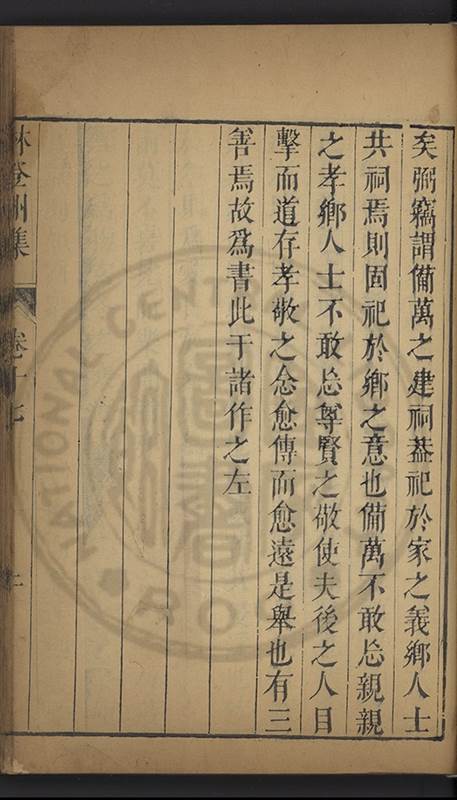 矣弼竊謂備萬之建祠葢祀於家之義鄉人士
共祠焉則固祀於鄉之意也備萬不敢忘親親
之孝鄉人士不敢忘尊賢之敬使夫後之人目
擊而道存孝敬之念愈傳而愈遠是舉也有三
善焉故爲書此于諸作之左
林登州集
卷十七